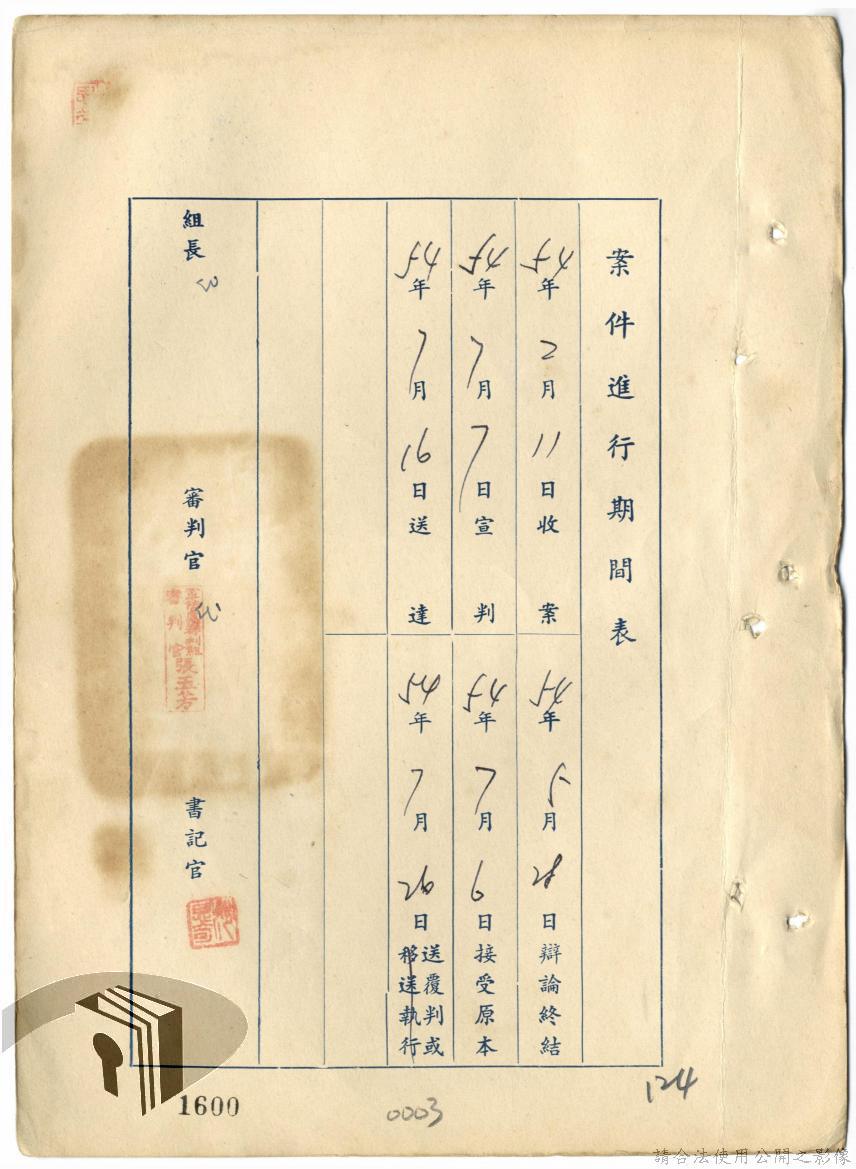 案件進行期間表
45年2月11日收案
45年5月28日辯論終結
45年7月7日宣判
45年7月9日接受原本
45年7月16日送達
45年7月26日送覆判或移送執行
組長
審判官
審判官張玉芳
書記官
1600
0003
124
請合法使用公開之影像